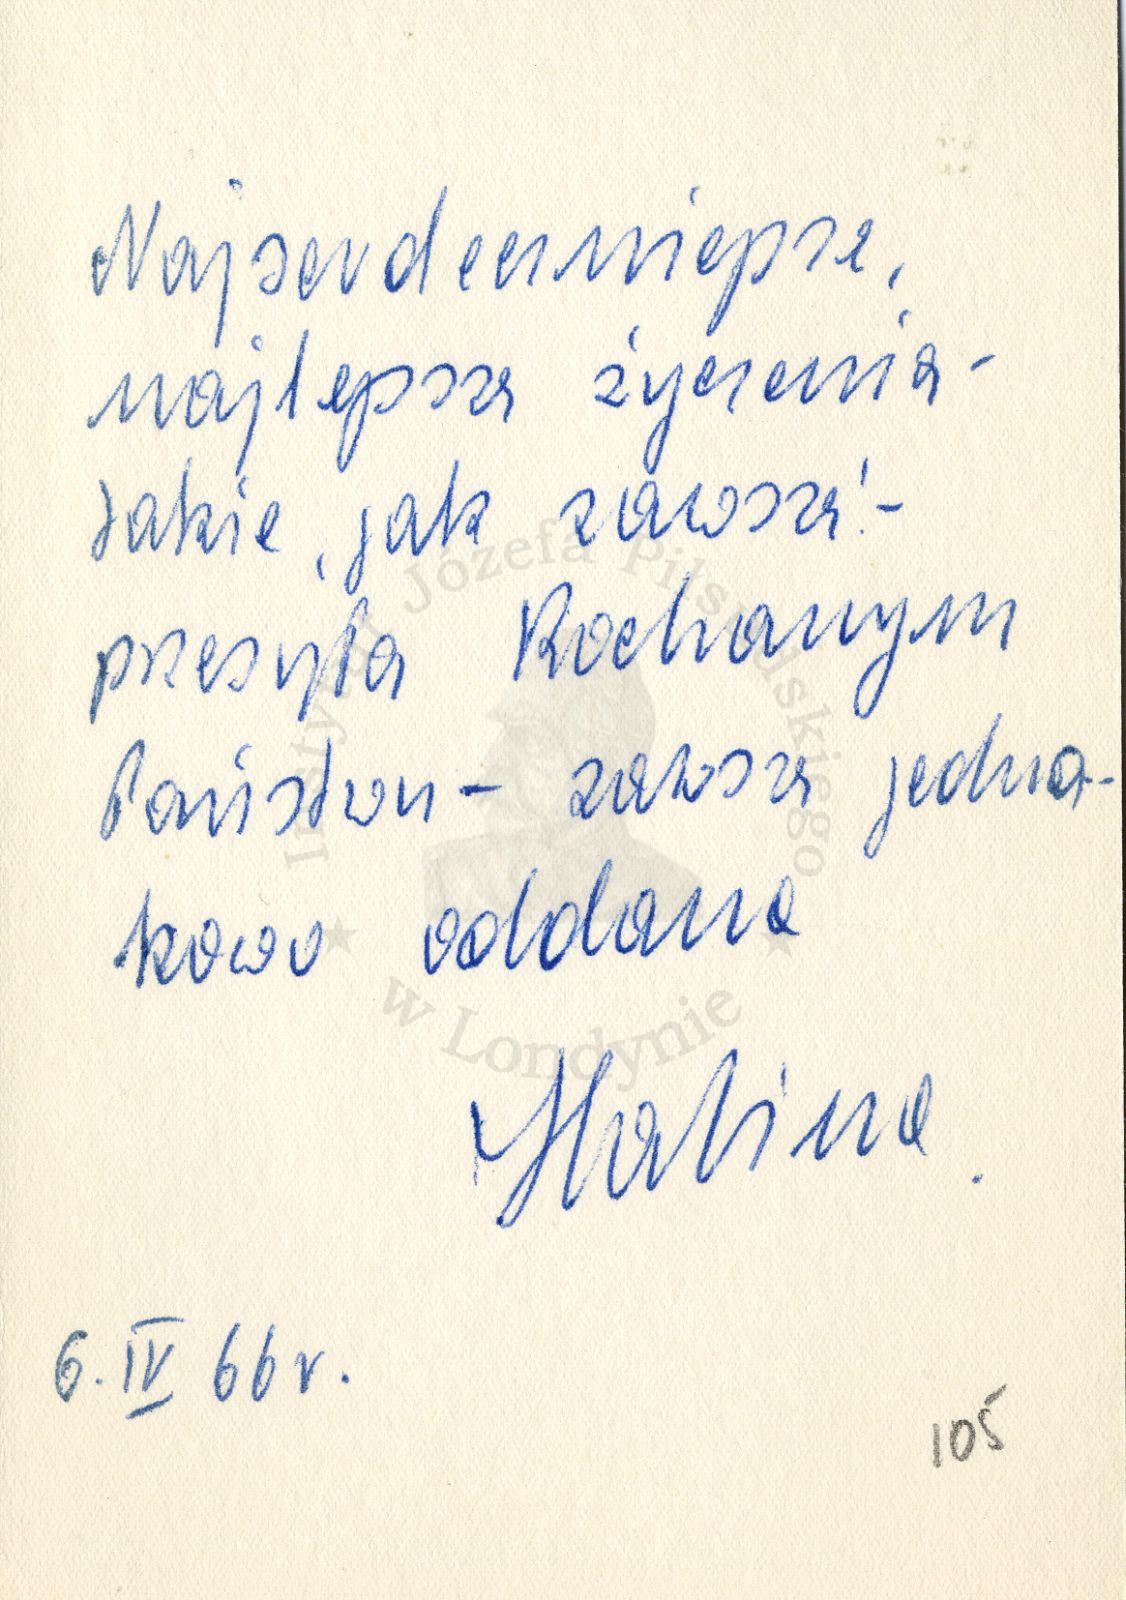 Najserdeczniejsze,
najlepsze życzenia -
takie, jak zawsze! -
przesyła Kochanym
Państwu - zawsze jedna-
kowo oddana
Halina.
6. IV 66 r.
105
Instytut Józefa Piłsudskiego
w Londynie